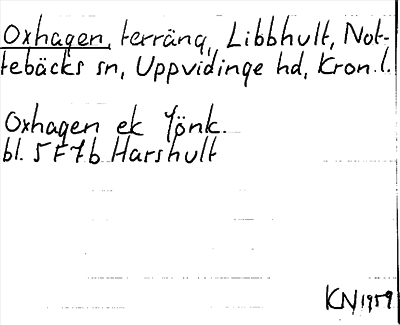 Oxhagen, terräng, Libbhult, Not-
tebäcks sn, Uppvidinge hd, Kron.l.
Oxhagen ek Jönk.
bl. 5F7b Harshult
KN 1959